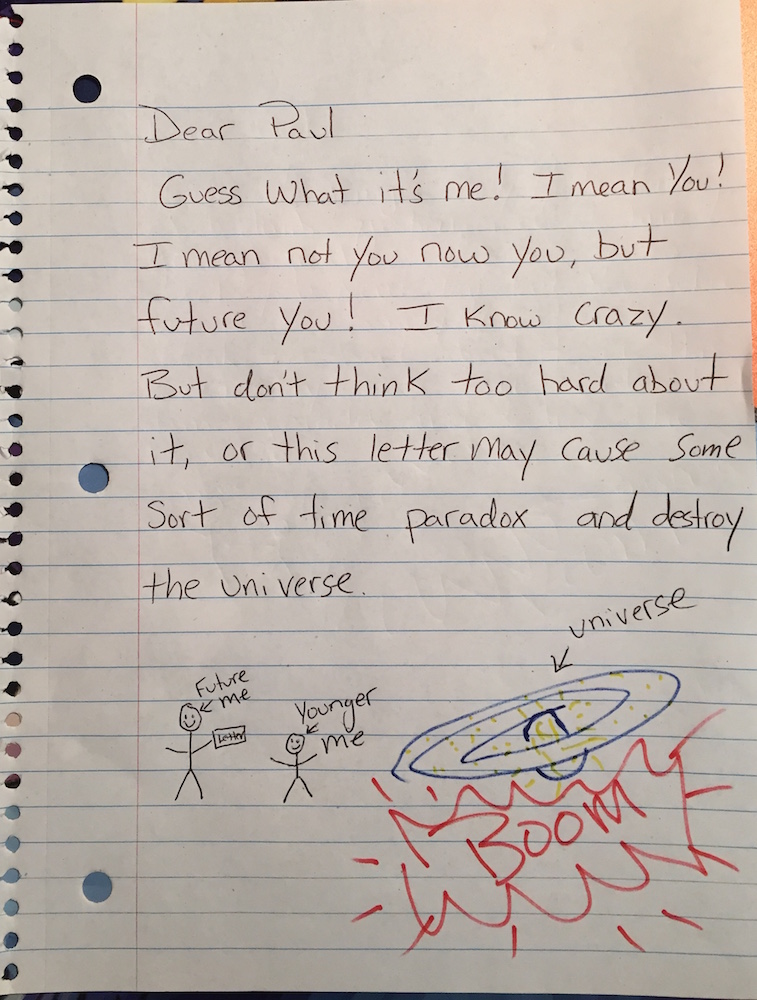 Dear Paul
Guess What it's me! I mean You!
I mean not you now you, but
future you! I Know crazy.
But don't think too hard about
it, or this letter may cause some
sort of time paradox and destroy
the universe.
universe
Future
me
Letter
Younger
me
BOOM